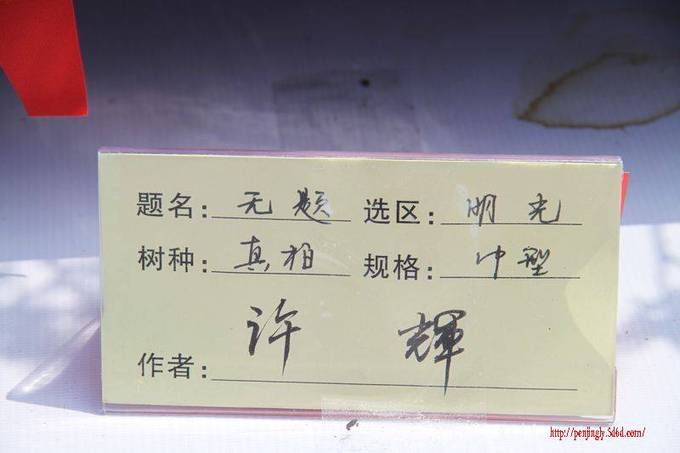 题名：无题 选区：明光
树种：真柏 规格：中型
作者：许輝
http://penjingly.5d6d.com/